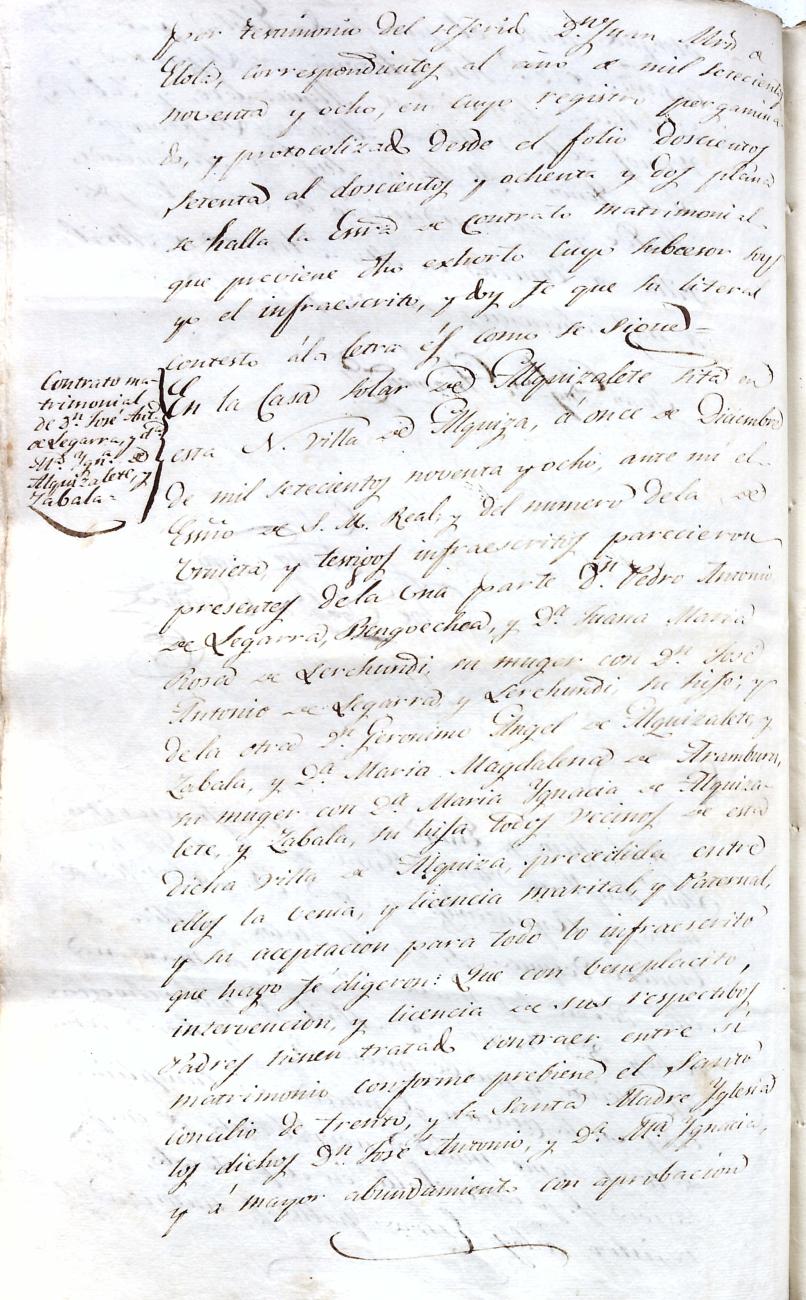 por testimonio del referid. Dn. Juan Mrn. de
Elola, correspondientes al año de mil setecientos
noventa y ocho, en cuyo registro pergamina-
do, y protocolizado desde el folio doscientos
setenta al doscientos y ochenta y dos plana
se halla la Essra. de Contrato matrimonial
que previene dho exhorto cuyo subcesor soy
yo el infraescrito, y doy fe que su literal
contesto á la letra és como se sigue=
Contrato ma-
trimonial,
de Dn. José Ant.
de Legarra, y Da.
Ma. Ygna. de
Alquizalete, y
Zabala=
En la Casa Solar de Alquizalete sita en
esta N. Villa de Alquiza, á once de Diciembre
de mil setecientos noventa y ocho, ante mi el
Essno. de S. M. Real, y del numero de la de
Urnieta, y testigos infraescritos parecieron
presentes de la una parte Dn. Pedro Antonio
de Legarra, Bengoechea, y Da. Juana Maria
Rosa de Lerchundi, su muger con Dn. José
Antonio de Legarra, y Lerchundi, su hijo; y
de la otra Dn. Geronimo Angel de Alquizalete, y
Zabala, y Da. Maria Magdalena de Aramburu,
su muger con Da. Maria Ygnacia de Alquiza-
lete, y Zabala, su hija todos vecinos de esta
dicha Villa de Alquiza, precedida entre
ellos la venia, y licencia marital, y Paternal,
y su aceptacion para todo lo infraescrito
que hago fé digeron: Que con beneplacito,
intervencion, y licencia de sus respectibos
Padres tienen tratado contraer entre si
matrimonio conforme prebiene el Santo
concilio de Trento, y la Santa Madre Yglesia
los dichos Dn. José Antonio, y Da. Ma. Ygnacia,
y á mayor abundamiento con aprobacion